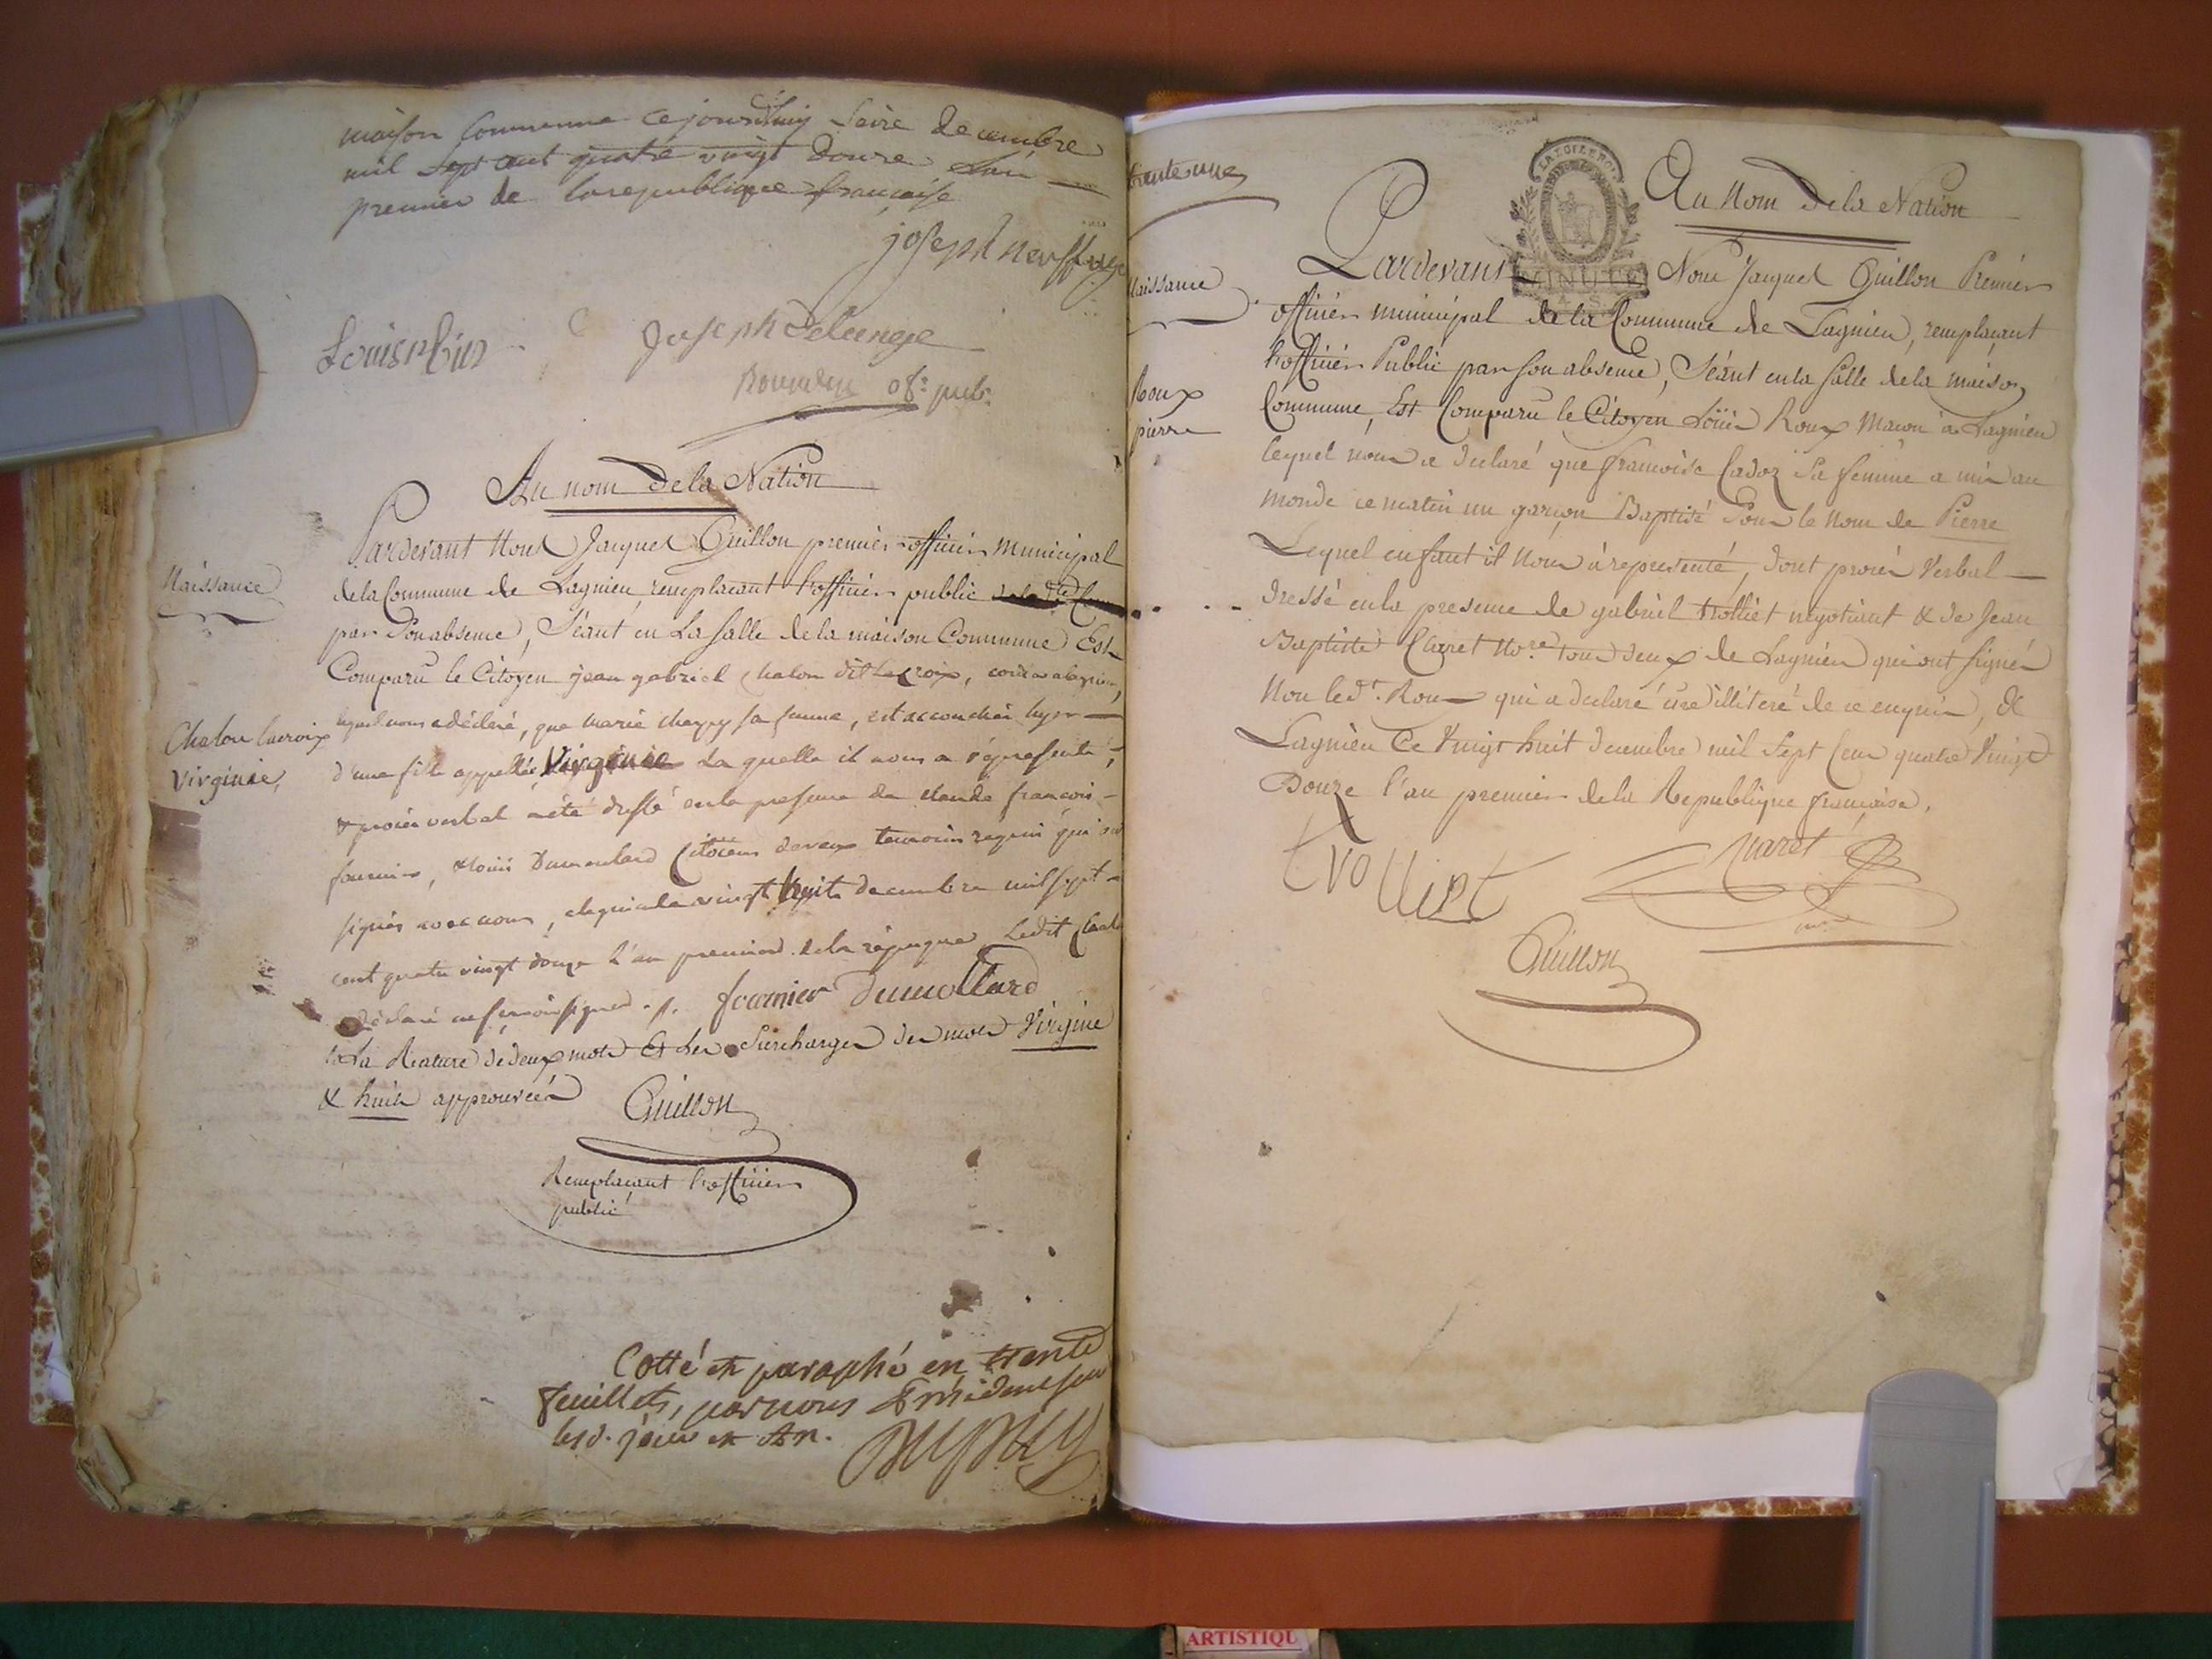 maison Commune ce jourdhuy Seize decembre
mil Sept cent quatre vingt douze L'an
premier de la republique française
joseph
Louis
Joseph Delange
of. pub.
Au nom de la Nation
Naissance
Pardevant Nous Jacques Guillon premier officier Municipal
de la Commune de Lagnieu, remplacant l'officier public
par Son absence, Séant en La Salle de la maison Commune Est
Comparu le Citoyen jean gabriel chalon dit Lacroix,
Chalon lacroix
Virginie,
lequel nous a déclaré, que marie sa femme, est accouchée hyer
d'une fille appellée Virginie La quelle il nous a représenté,
& procès verbal a été dressé en la presence de claude françois
fournier, & Louis Dumoulard Citoiens temoins requis qui ont
signés avec nous, a lagnieu le vingt huit decembre mil sept
cent quatre vingt douze L'an premier de la Ledit
déclaré ne savoir signer. fournier Dumollard
La Rature de deux mots Et Les Surcharges des mots Virginie
& huit approuvées
Guillon
Remplacant l'officier
public
Cotté et paraphé en trente
feuillets, par nous Président
lesd. jour et An.
Dupuy
trente une
Au Nom de la Nation
LA LOI LE ROI
MINUTE
4. S.
Naissance
Pardevant Nous Jacques Guillon Premier
officier municipal de la Commune de Lagnieu, remplacant
l'officier Public par son absence, Séant en la Salle de la maison
Roux
pierre
Commune, Est Comparu le Citoyen Loüis Roux Macon à Lagnieu
lequel nous a declaré que francoise Cadoz Sa femme a mis au
monde ce matin un garçon Baptisé Sous le Nom de Pierre
Lequel enfant il Nous à representé, dont procès Verbal
dressé en la presence de gabriel trolliet negotiant & de Jean
Baptiste Claret No.re tous deux de Lagnieu qui ont signés
Non led.t Roux qui a declaré être illiteré de ce enquis, A
Lagnieu Ce Vingt huit decembre mil Sept Cent quatre Vingt
Douze l'an premier de la Republique française.
trolliet
Claret
Guillon
ARTISTIQU